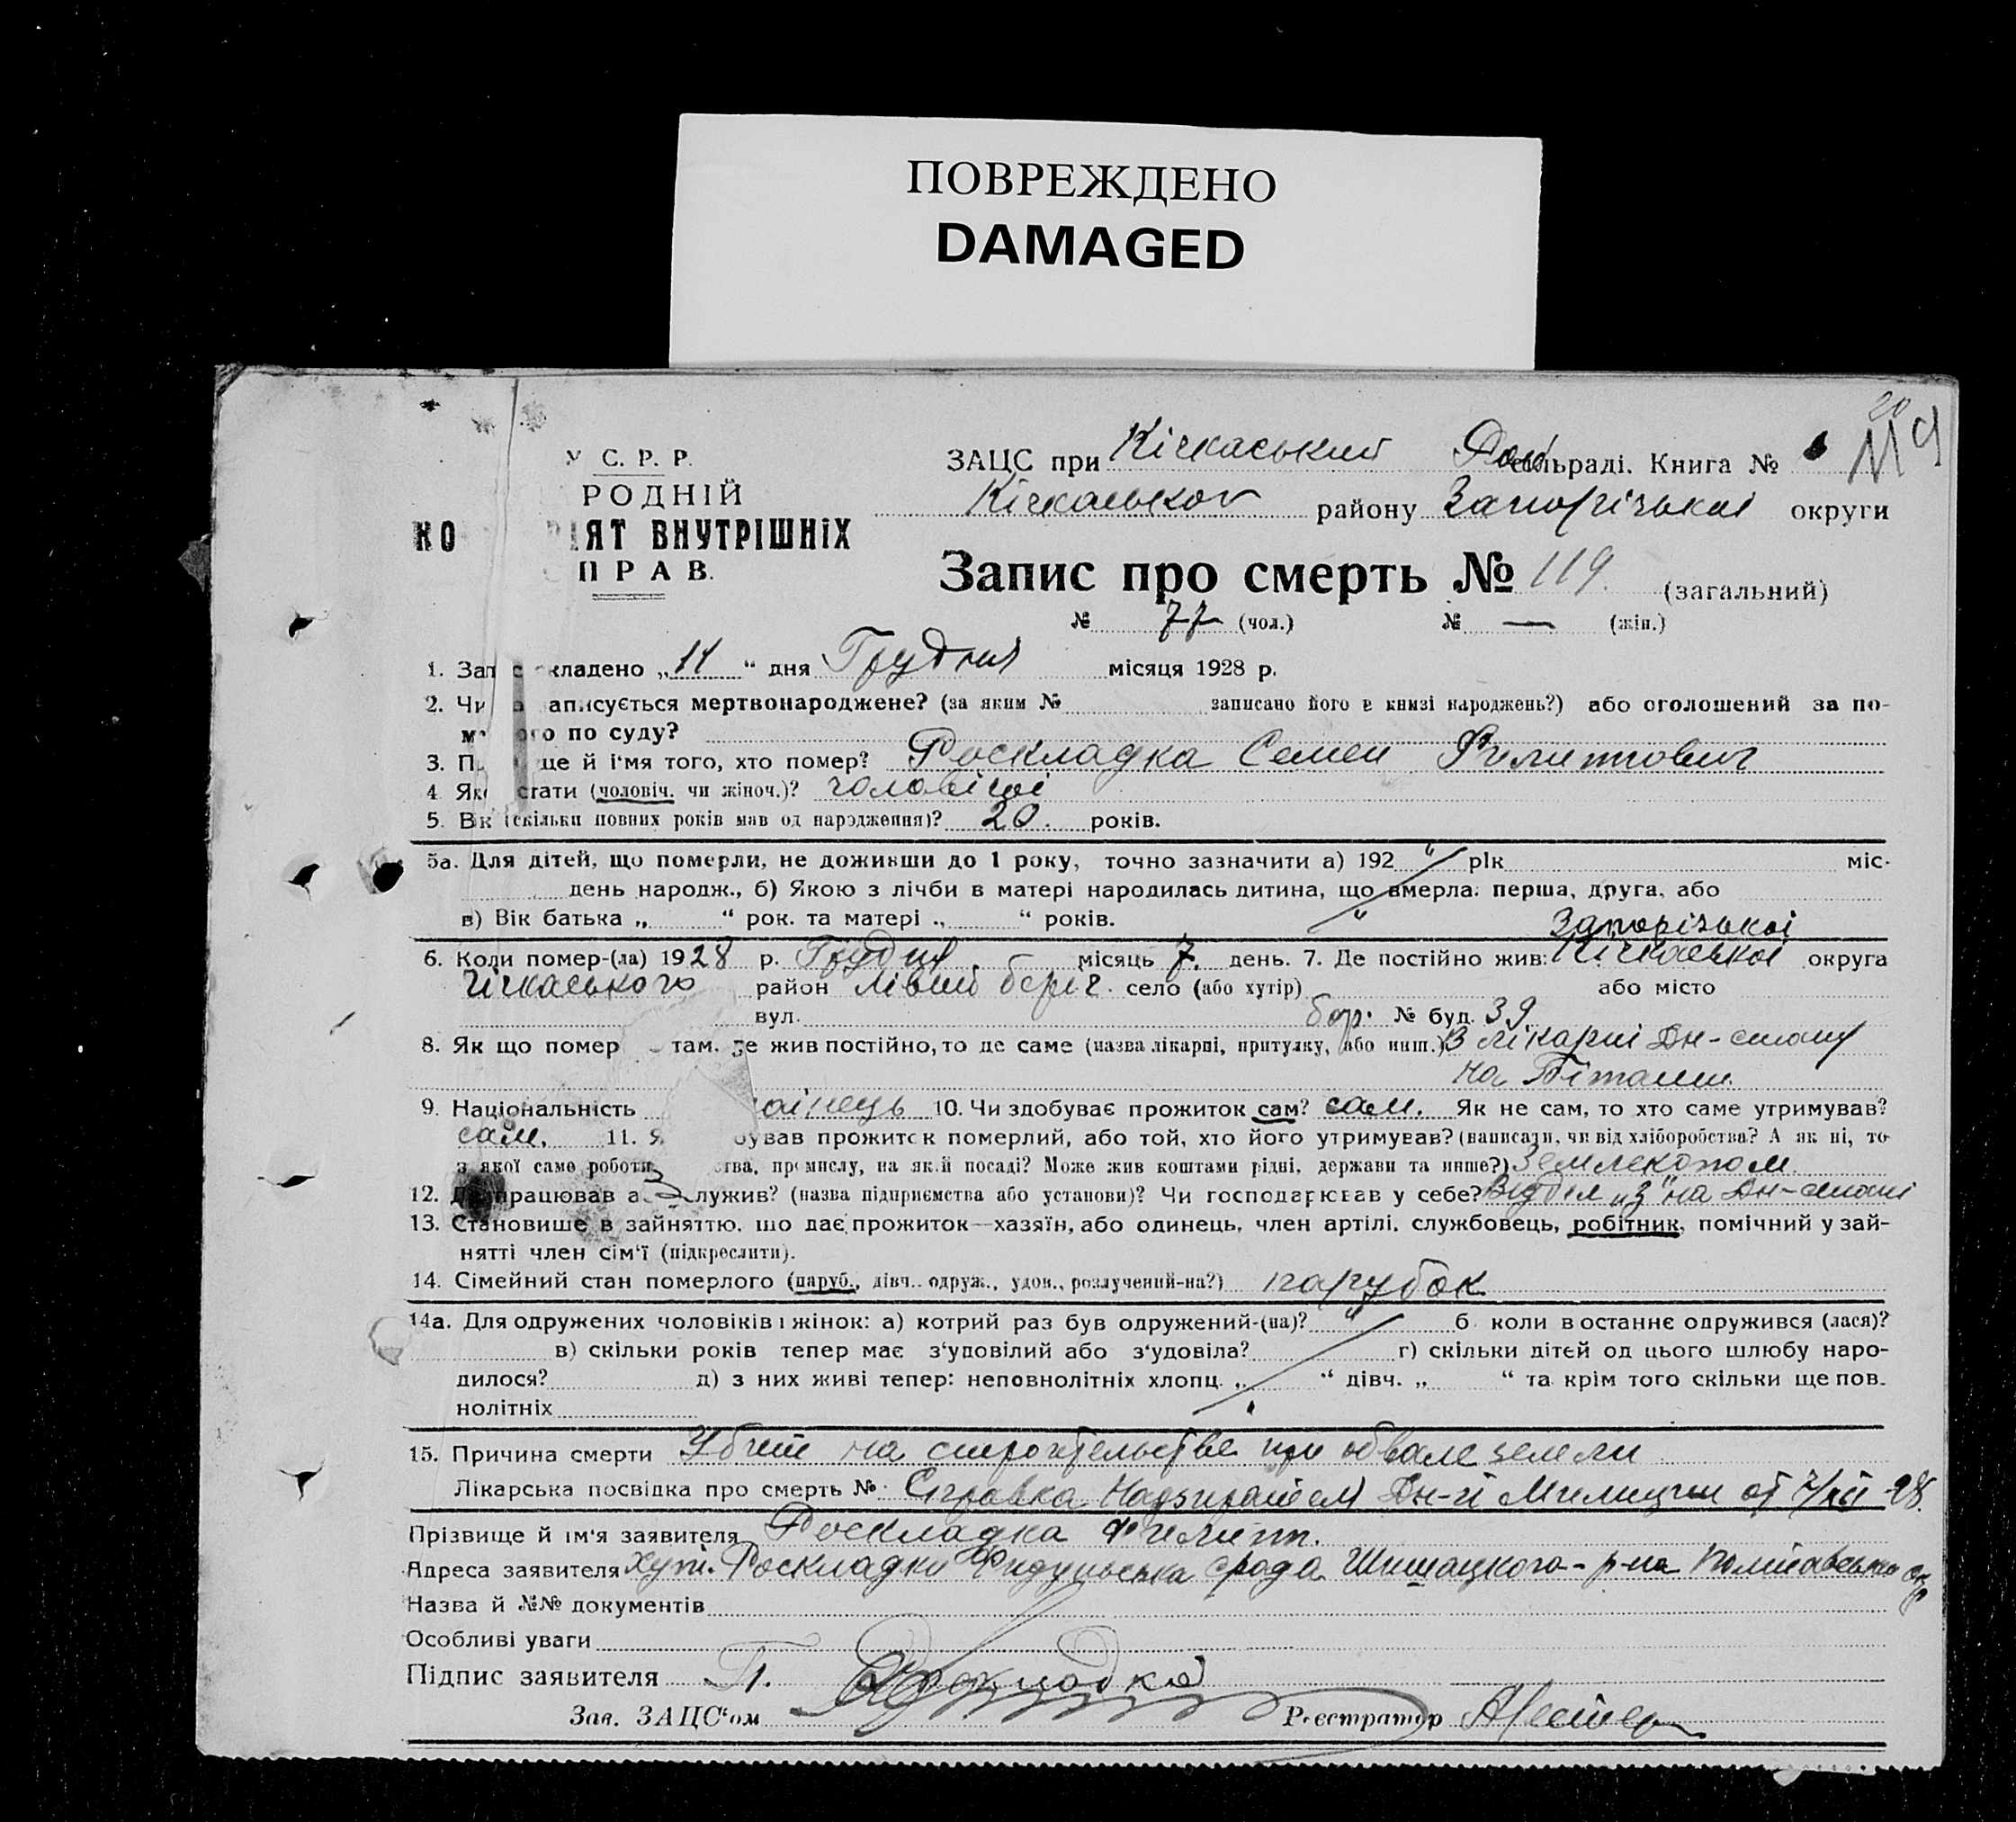 ПОВРЕЖДЕНО
DAMAGED
У С. Р. Р.
РОДНІЙ
КО РІЯТ ВНУТРІШНІХ
ПРАВ.
20
119
ЗАЦС при Кічкаський Рай сільраді. Книга №
Кічкаськой району Запорізької округи
Запис про смерть № 119. (загальний)
№ 77 (чол.) № — (жін.)
1. Запис складено „11“ дня Грудня місяця 1928 р.
2. Чи записується мертвонароджене? (за яким № записано його в книзі народжень?) або оголошений за по-
м го по суду?
3. П ще й ім'я того, хто помер? Роскладка Семен Филиппович
4 Яко статі (чоловіч. чи жіноч.)? чоловічої
5. Вік (скільки повних років мав од народження)? 20. років.
5а. Для дітей, що померли, не доживши до 1 року, точно зазначити а) 192 " рік міс.
день народж., б) Якою з лічби в матері народилась дитина, що вмерла: перша, друга, або
в) Вік батька „ “ рок. та матері „ “ років. "
Запорізької
6. Коли помер-(ла) 1928 р. Грудня місяць 7. день. 7. Де постійно жив: Кічкаської округа
Кічкаського район лівий беріг. село (або хутір) або місто
вул. бар. № буд. 39
8. Як що помер там, де жив постійно, то де саме (назва лікарні, притулку, або инш.) В лікарні Дн-стану
на
9. Національність аїнець 10. Чи здобуває прожиток сам? сам. Як не сам, то хто саме утримував?
сам. 11. Я бував прожиток померлий, або той, хто його утримував? (написати, чи від хліборобства? А як ні, то
з якої саме роботи, ства, промислу, на якій посаді? Може жив коштами рідні, держави та инше?) Землекопом
12. Де працював а служив? (назва підприємства або установи)? Чи господарював у себе? Відділ „3" на Дн-стані
13. Становище в зайняттю, що дає прожиток—хазяїн, або одинець, член артілі, службовець, робітник, помічний у зай-
нятті член сім'ї (підкреслити).
14. Сімейний стан померлого (паруб., дівч., одруж., удов., розлучений-на?) парубок
14а. Для одружених чоловіків і жінок: а) котрий раз був одружений-(на)? " б коли востаннє одружився (лася)?
в) скільки років тепер має з'удовілий або з'удовіла? г) скільки дітей од цього шлюбу наро-
дилося? д) з них живі тепер: неповнолітніх хлопц. „ “ дівч. „ “ та крім того скільки ще пов.
нолітніх
15. Причина смерти Убит на строительстве при обвале земли
Лікарська посвідка про смерть № Справка Дн-й Милиции от 7/XII-28.
Прізвище й ім'я заявителя Роскладка Филипп.
Адреса заявителя хут. Роскладки с/рада Шишацкого р-на Полтавсько окр
Назва й №№ документів
Особливі уваги
Підпис заявителя Роскладка
Зав. ЗАЦС'ом Реєстратор